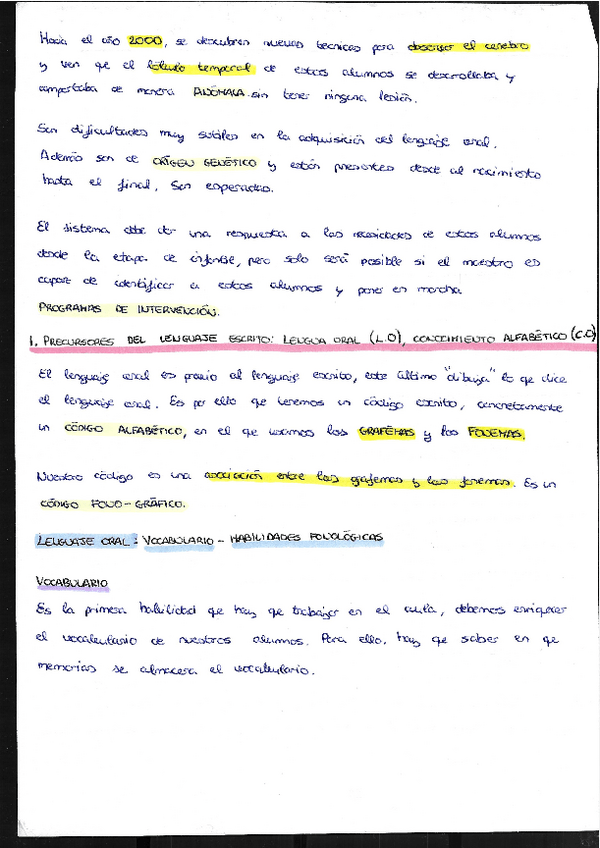 Hacia el año 2000, se descubren nuevas técnicas para observar el cerebro
y ven que el lóbulo temporal de estos alumnos se desarrollaba y
comportaba de manera ANÓMALA sin tener ninguna lesión.
Son dificultades muy sutiles en la adquisición del lenguaje oral.
Además son de ORÍGEN GENÉTICO y están presentes desde el nacimiento
hasta el final. Son esperados.
El sistema debe dar una respuesta a las necesidades de estos alumnos
desde la etapa de infantil, pero solo será posible si el maestro es
capaz de identificar a estos alumnos y poner en marcha
PROGRAMAS DE INTERVENCIÓN.
1. PRECURSORES DEL LENGUAJE ESCRITO: LENGUA ORAL (L.O), CONOCIMIENTO ALFABÉTICO (C.O)
El lenguaje oral es previo al lenguaje escrito, este último "dibuja" lo que dice
el lenguaje oral. Es por ello que tenemos un código escrito, concretamente
un CÓDIGO ALFABÉTICO, en el que usamos los GRAFEMAS y los FONEMAS.
Nuestro código es una asociación entre los grafemas y los fonemas. Es un
CÓDIGO FONO-GRÁFICO.
LENGUAJE ORAL: VOCABULARIO - HABILIDADES FONOLÓGICAS
VOCABULARIO
Es la primera habilidad que hay que trabajar en el aula, debemos enriquecer
el vocabulario de nuestros alumnos. Para ello, hay que saber en que
memorias se almacena el vocabulario.